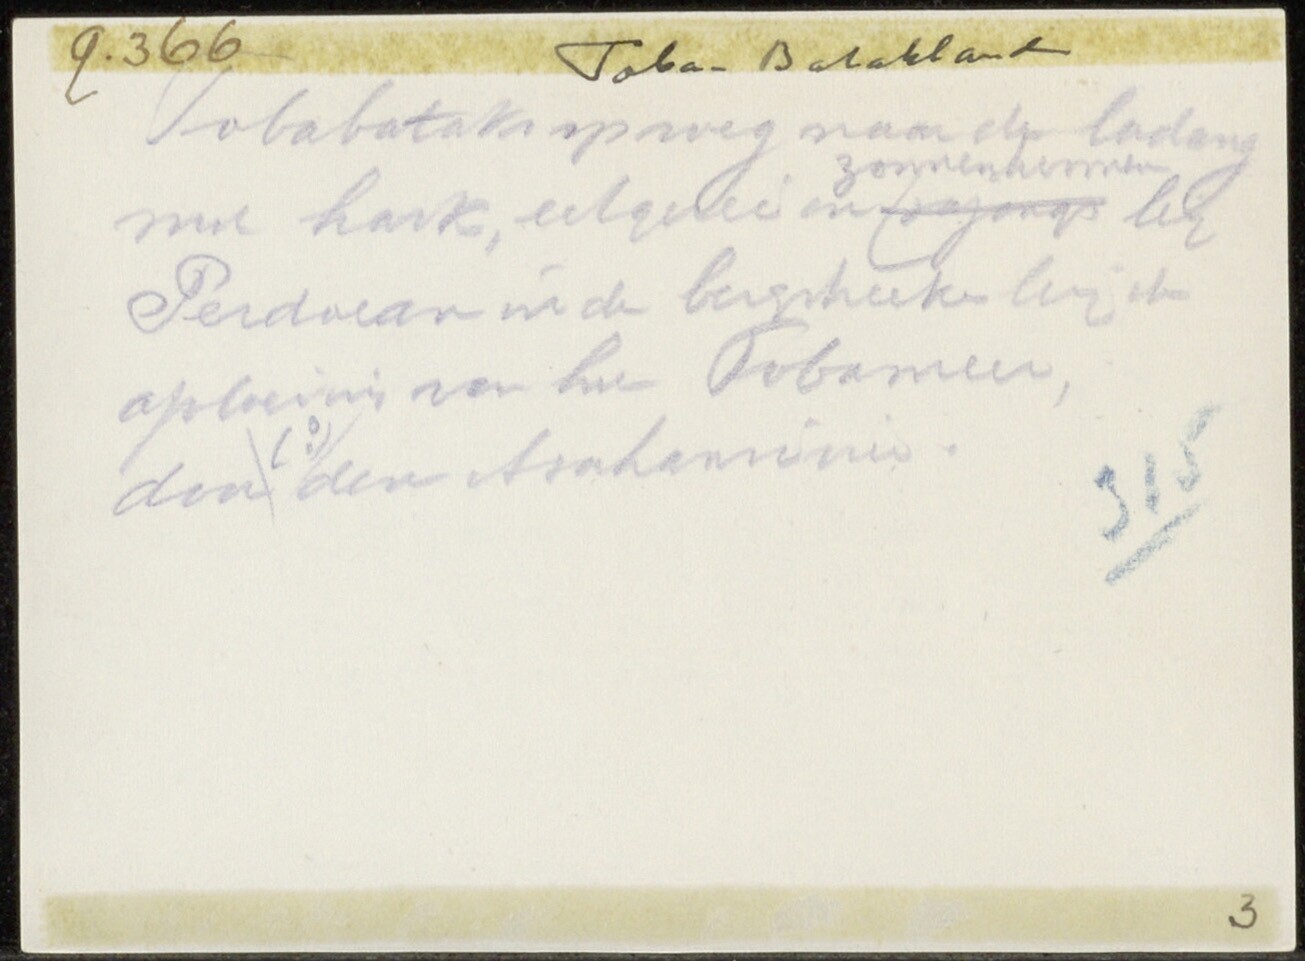 q.366
Toba-Batakland
Tobabataks op weg naar de ladang
zonneschermen
met hark, eetgerei en pajongs bij
Perdoean in de bergstreken bij de
aploeiing van het Tobameer,
door (?) den Asahanrivier.
315
3